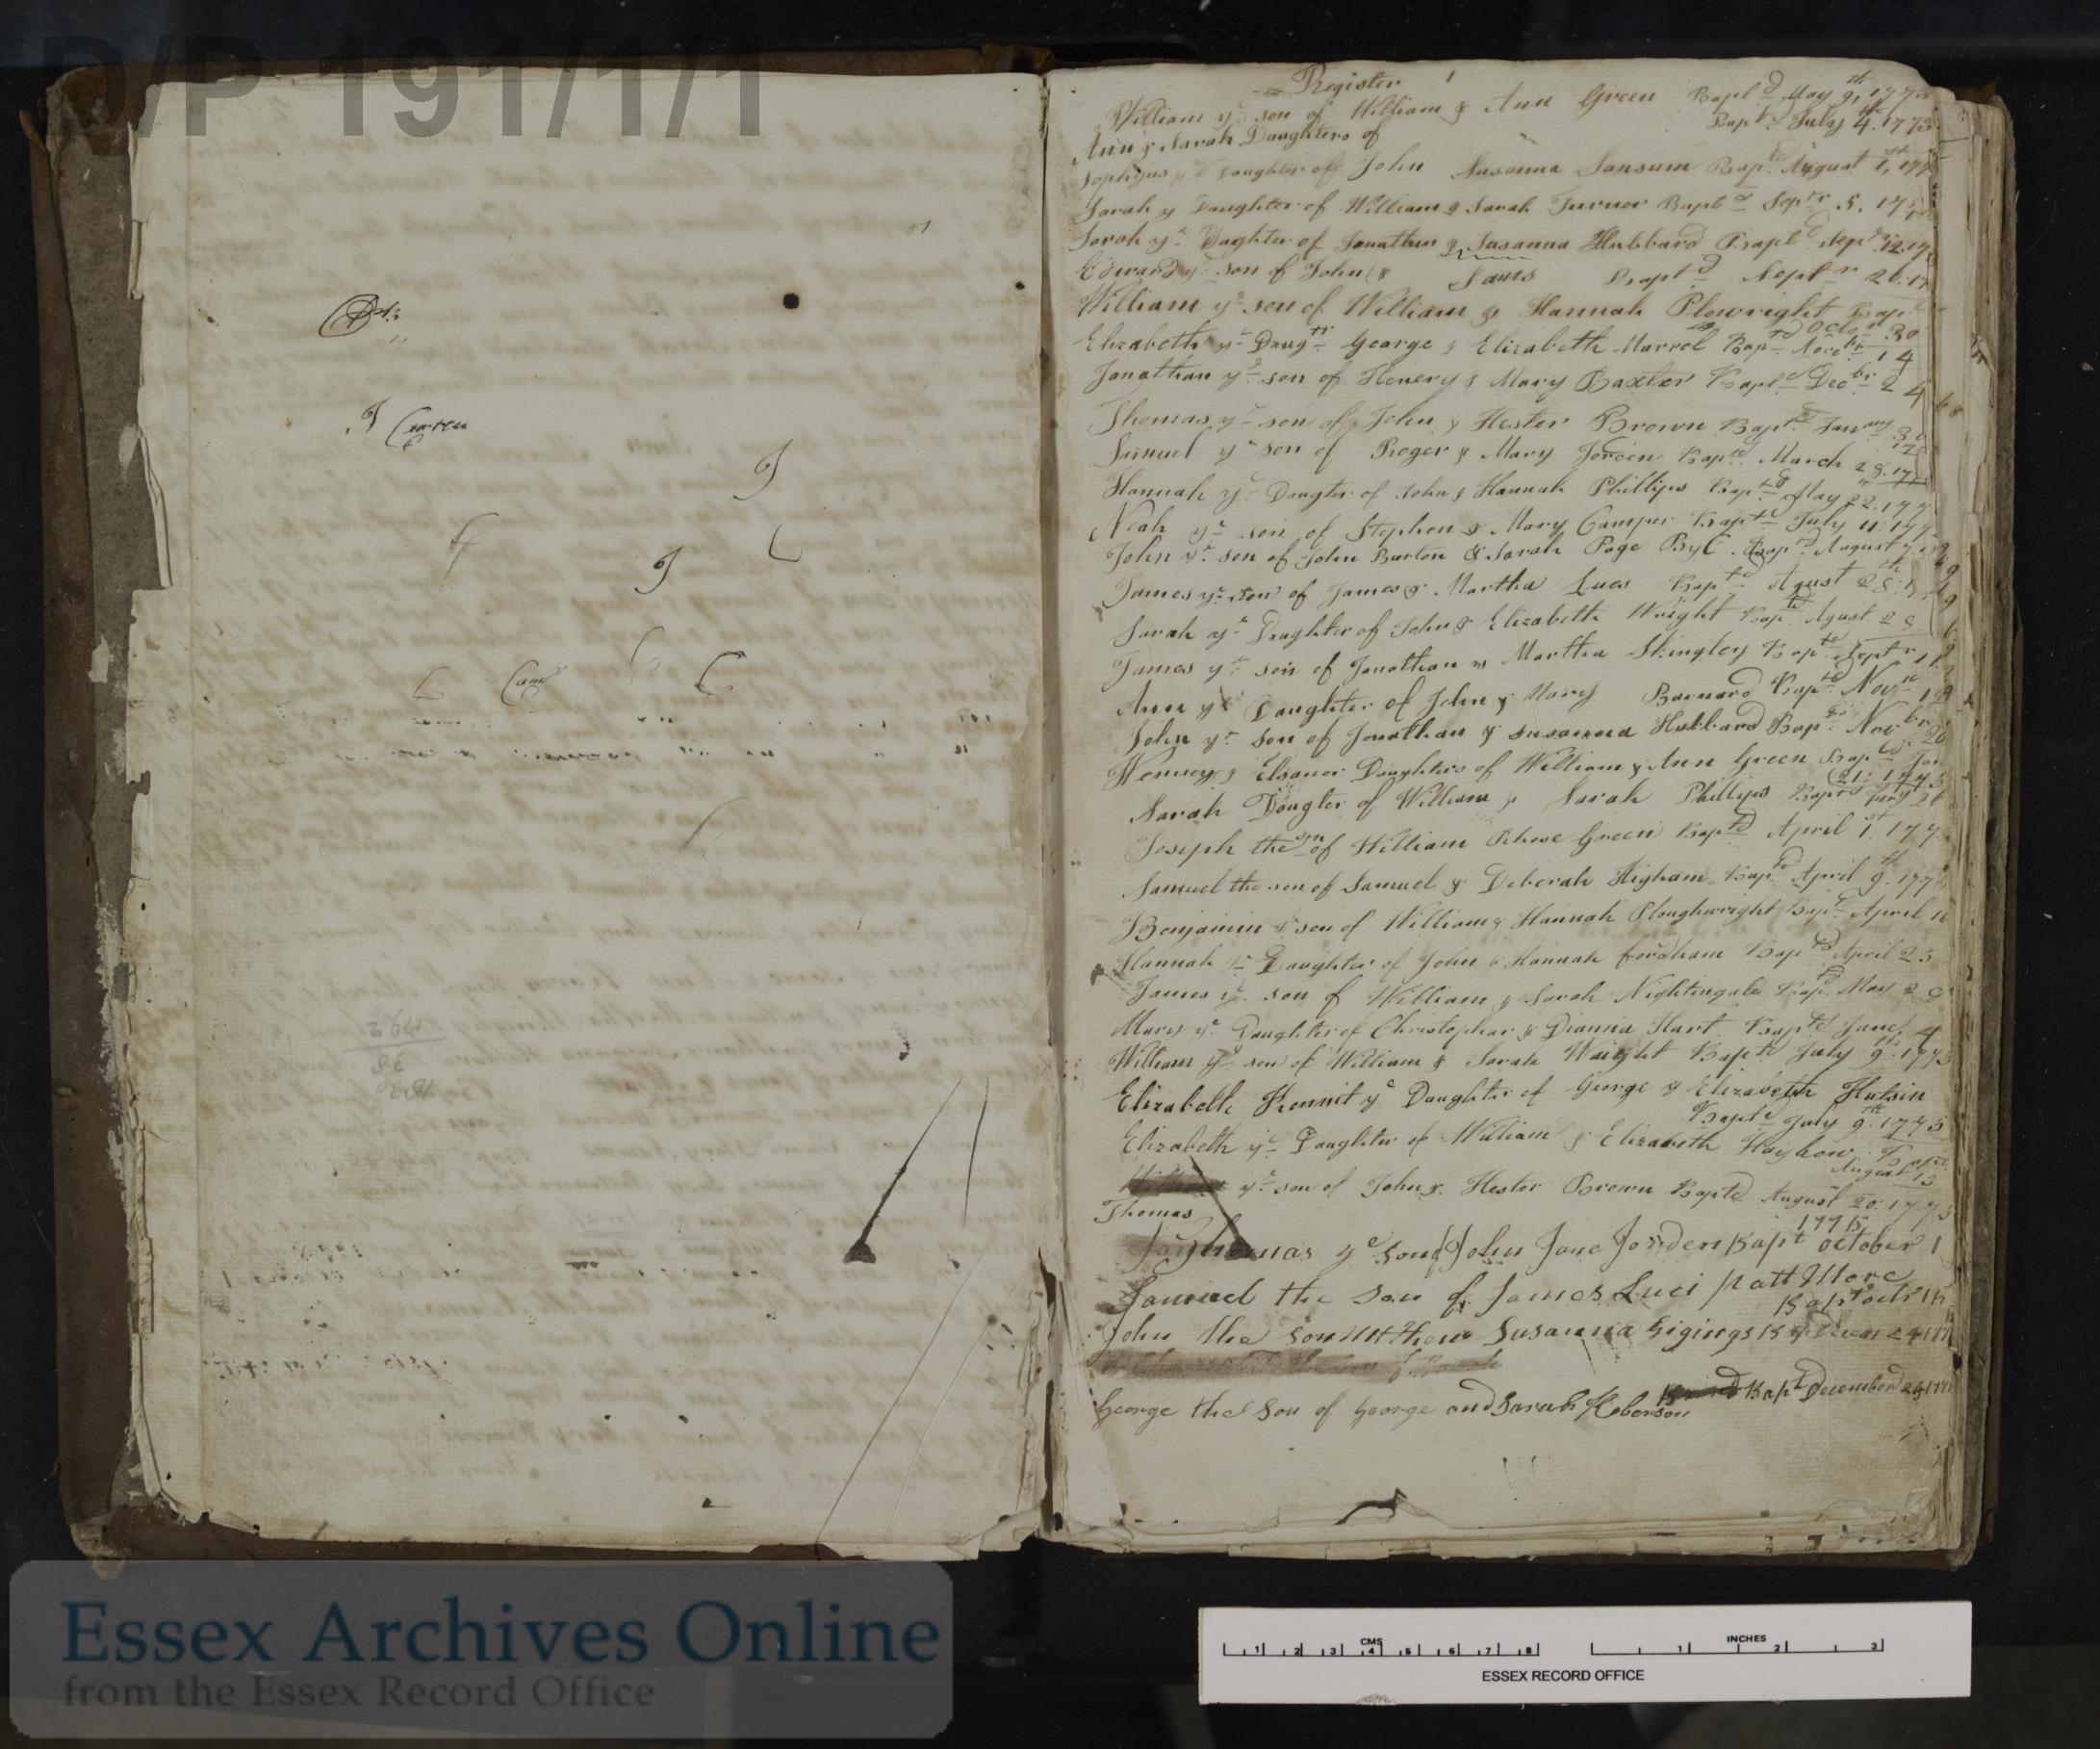 D/P 191/1/1
Register 1
William ye son of William & Ann Green Baptd May 9th, 1773
Baptd July 4th 1773
Ann & Sarah Daughters of
ye Daughter of John Susanna Sansum Baptd August 1st, 177
Sarah y Daughter of William & Sarah Turner Baptd Septr 5. 17
Sarah ye Daghter of Jonathan & Susanna Hubbard Baptd Sepr 12 17
Edward ye son of John & Saws Baptd Septr 26. 17
William ye son of William & Hannah Plowright Bapt
Octor 30
Elizabeth ye Daugtr George & Elizabeth Murrel Baptd Novebr 14
Jonathan ye son of Henery & Mary Baxter Baptd Decbr 24
Thomas ye son of John & Hester Brown Baptd Janury 30
Samuel ye son of Roger & Mary Jorden Baptd March 28. 17
Hannah ye Daugter of John & Hannah Phillips Baptd May 22. 177
Noah ye son of Stephen & Mary Camper Baptd July 11. 177
John ye son of John Burton & Sarah Page By C. Baptd August 7
James ye son of James & Martha Lues Baptd Agust 28th
Sarah ye Daughter of John & Elizabeth Wright Baptd Agust 28
James ye son of Jonathan & Martha Skingley Baptd Septr 11
Ann ye Daughter of John & Mary Barnard Baptd Novr 13
John ye son of Jonathan & Susanna Hubbard Bapd Novbr 20
& Eleanor Daughters of William & Ann Green Baptd Jan
Sarah Daugter of William & Sarah Phillips Baptd
Joseph the son of William Green Baptd April 1st. 177
Samuel the son of Samuel & Deborah Higham Baptd April 9th. 1775
Benjamin ye son of William & Hannah Ploughwright Baptd April 16
Hannah ye Daughter of John & Hannah fordham Baptd April 23
James ye son of William & Sarah Nightingale Baptd May 28
Mary ye Daughter of Christopher & Dianna Hart Baptd June 4
William ye son of William & Sarah Waight Baptd July 9th. 1775
Elizabeth Kennit ye Daughter of George & Elizabeth Hutsin
Baptd July 9th. 1775
Elizabeth ye Daughter of William & Elizabeth Hayhow Bapt
August 13
ye son of John & Hester Brown Baptd August 20. 1775
Thomas
1775
Thomas ye son of John Jane Jorden Bapt october 1
Samuel the Son of James Luci pattMore
Bapt octr 15
John the son Susanna Gigings Decem 24 177
George the Son of George and Sarah Roberson Bapt December 24 177
1792
38
1830
Essex Archives Online
from the Essex Record Office
CMS
1 2 3 4 5 6 7 8
INCHES
1 2 3
ESSEX RECORD OFFICE